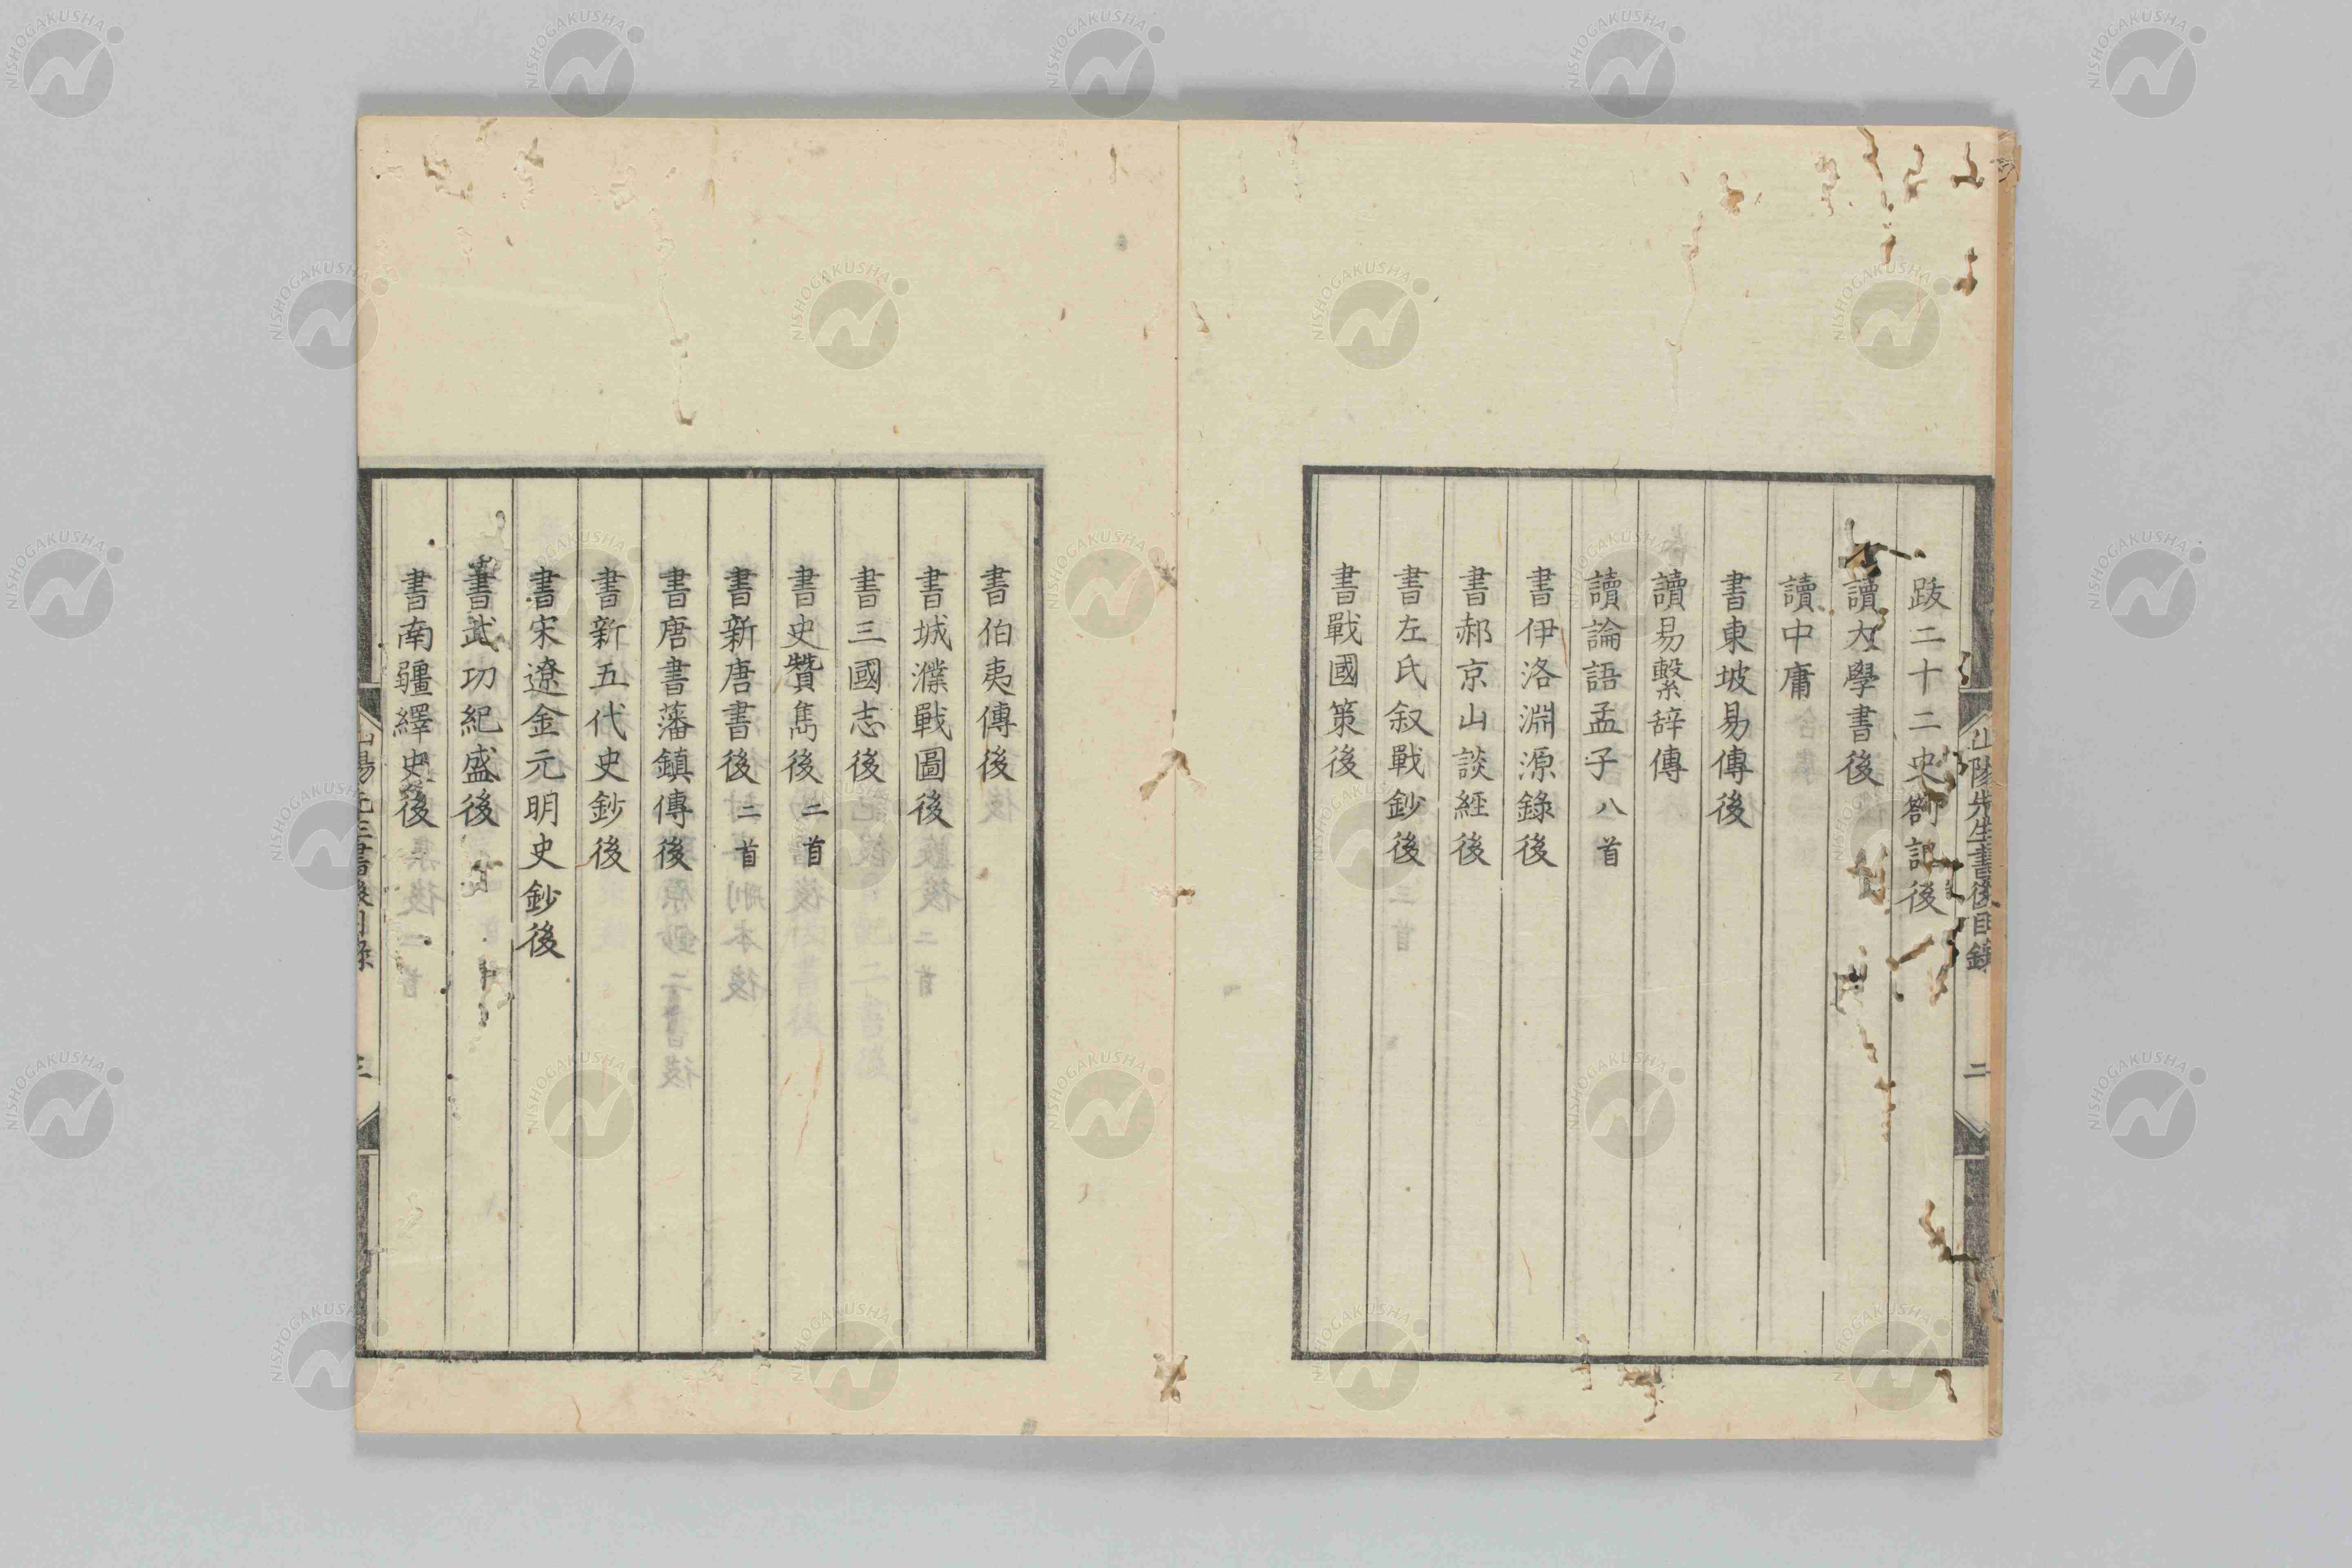 山陽先生書後目錄
二
跋二十二史劄記後
讀大學書後
讀中庸
書東坡易傳後
讀易繫辞傳
讀論語孟子 八首
書伊洛淵源錄後
書郝京山談經後
書左氏叙戰鈔後
書戰國策後
書伯夷傳後
書城濮戰圖後
書三國志後
書史贊雋後 二首
書新唐書後 二首
書唐書藩鎮傳後
書新五代史鈔後
書宋遼金元明史鈔後
書武功紀盛後
書南疆繹史後
NISHOGAKUSHA